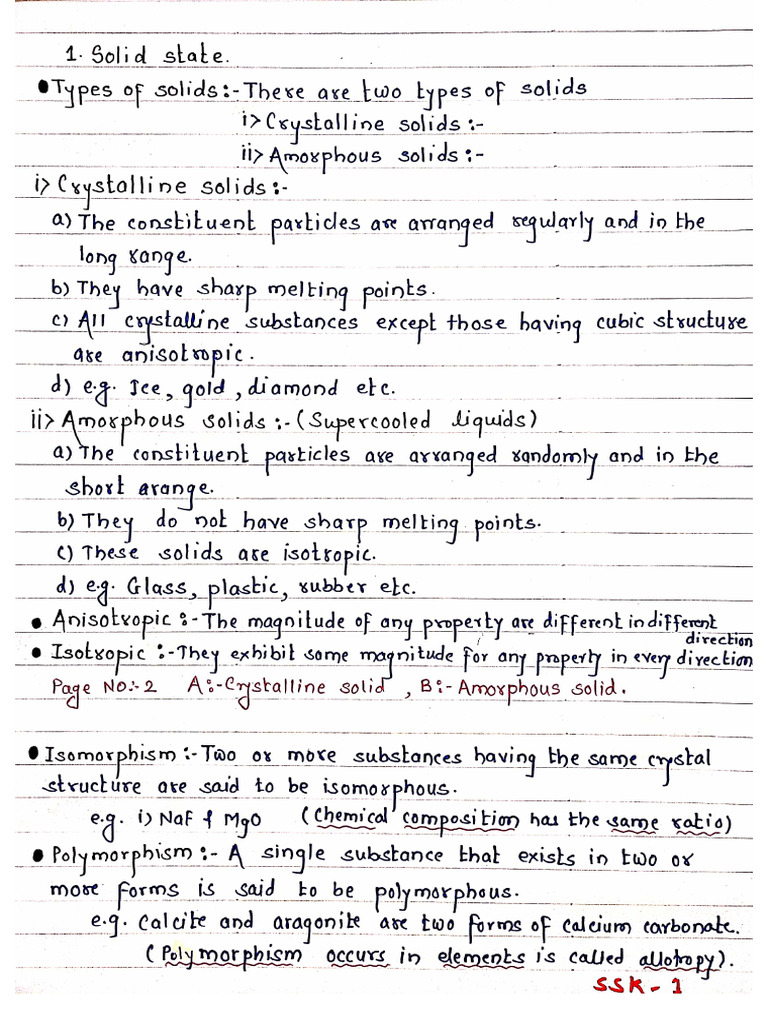 1. Solid state.
• Types of solids:- There are two types of solids
i> Crystalline solids:-
ii> Amorphous solids:-
i> Crystalline solids:-
a) The constituent particles are arranged regularly and in the
long range.
b) They have sharp melting points.
c) All crystalline substances except those having cubic structure
are anisotropic.
d) e.g. Ice, gold, diamond etc.
ii> Amorphous solids:- (Supercooled liquids)
a) The constituent particles are arranged randomly and in the
short arange.
b) They do not have sharp melting points.
c) These solids are isotropic.
d) e.g. Glass, plastic, rubber etc.
• Anisotropic:- The magnitude of any property are different in different
direction
• Isotropic:- They exhibit some magnitude for any property in every direction
Page No:-2 A:- Crystalline solid, B:- Amorphous solid.
• Isomorphism:- Two or more substances having the same crystal
structure are said to be isomorphous.
e.g. i) NaF & MgO (Chemical composition has the same ratio)
• Polymorphism:- A single substance that exists in two or
more forms is said to be polymorphous.
e.g. Calcite and aragonite are two forms of calcium carbonate.
(Polymorphism occurs in elements is called allotropy).
SSK - 1